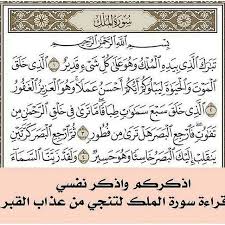 سورة الملك
بسم الله الرحمن الرحيم
تبرك الذى بيده الملك وهو على كل شىء قدير ١ الذى خلق
الموت والحيوة ليبلوكم أيكم أحسن عملا وهو العزيز الغفور
٢ الذى خلق سبع سموات طباقا ما ترى فى خلق الرحمن من
تفوت فارجع البصر هل ترى من فطور ٣ ثم ارجع البصر كرتين
ينقلب إليك البصر خاسئا وهو حسير ٤ ولقد زينا السماء
اذكركم واذكر نفسي
قراءة سورة الملك لتنجي من عذاب القبر